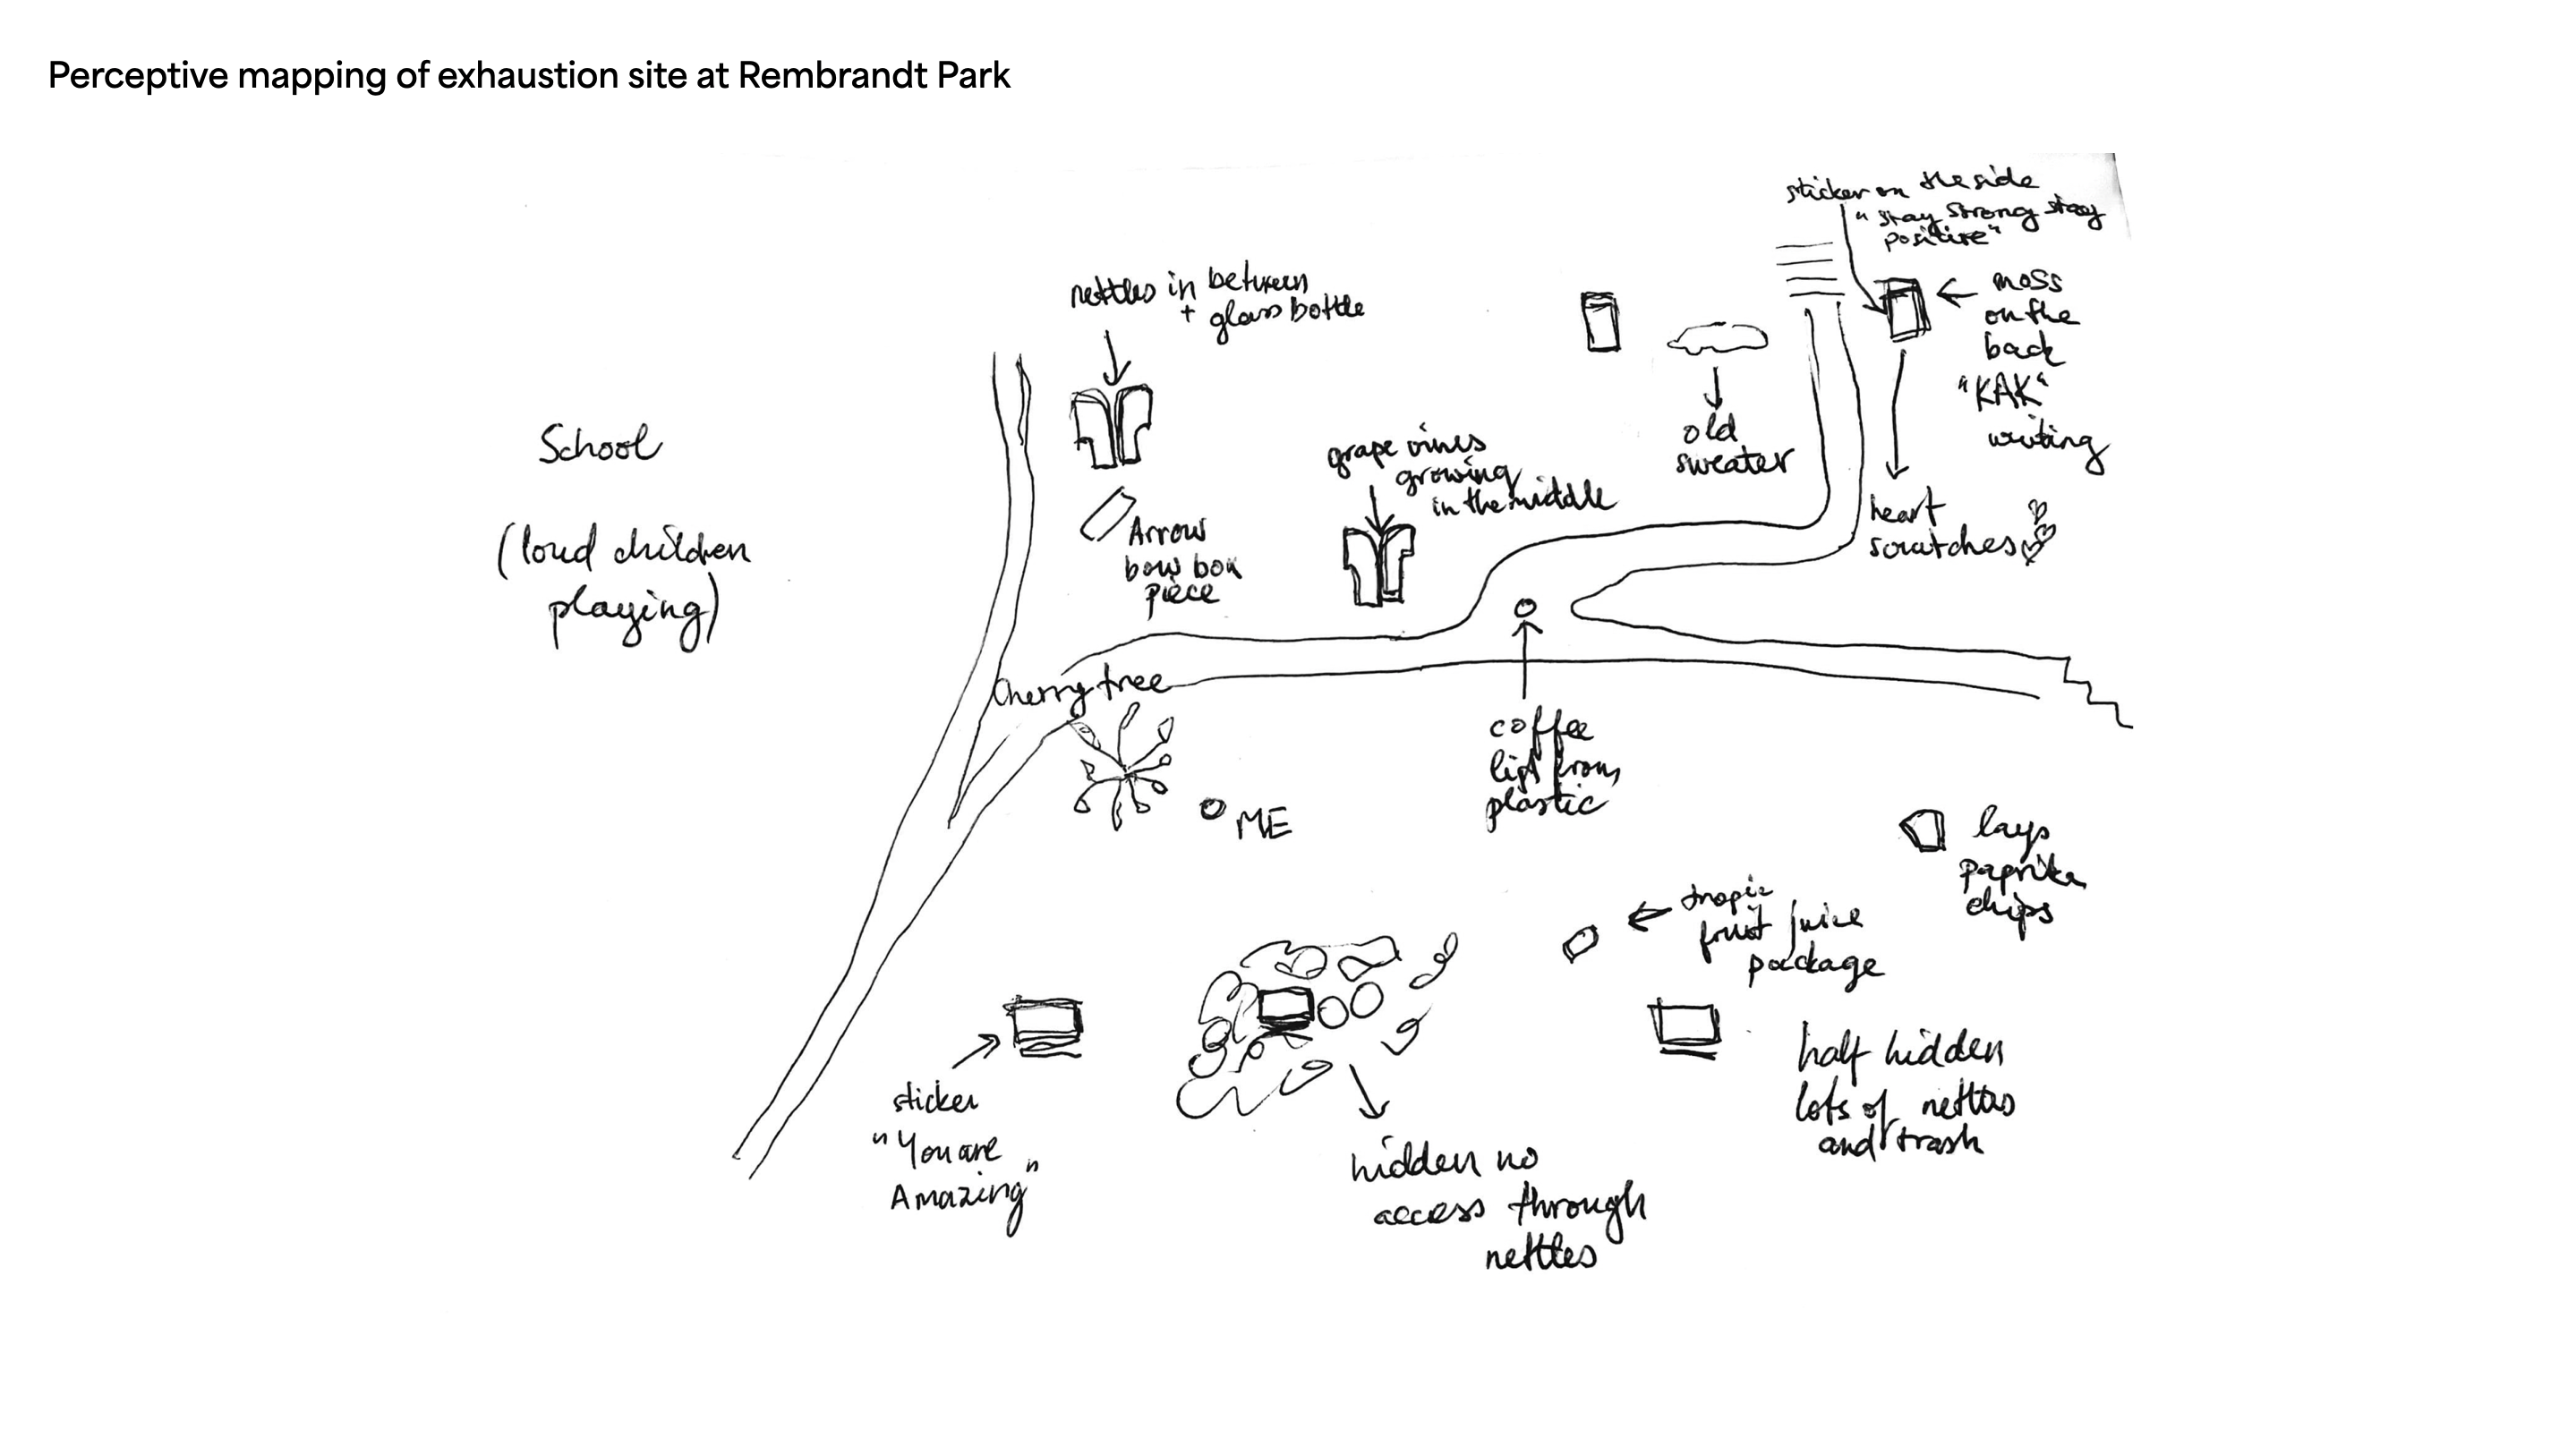 Perceptive mapping of exhaustion site at Rembrandt Park
sticker on the side
"stay strong stay
positive"
nettles in between
+ glass bottle
moss
on the
back
"KAK"
writing
School
(loud children
playing)
old
sweater
grape vines
growing
in the middle
heart
scratches
Arrow
bow box
piece
Cherry tree
coffee
from
plastic
ME
lays
paprika
chips
tropic
fruit juice
package
half hidden
lots of nettles
and trash
sticker
"You are
Amazing"
hidden no
access through
nettles